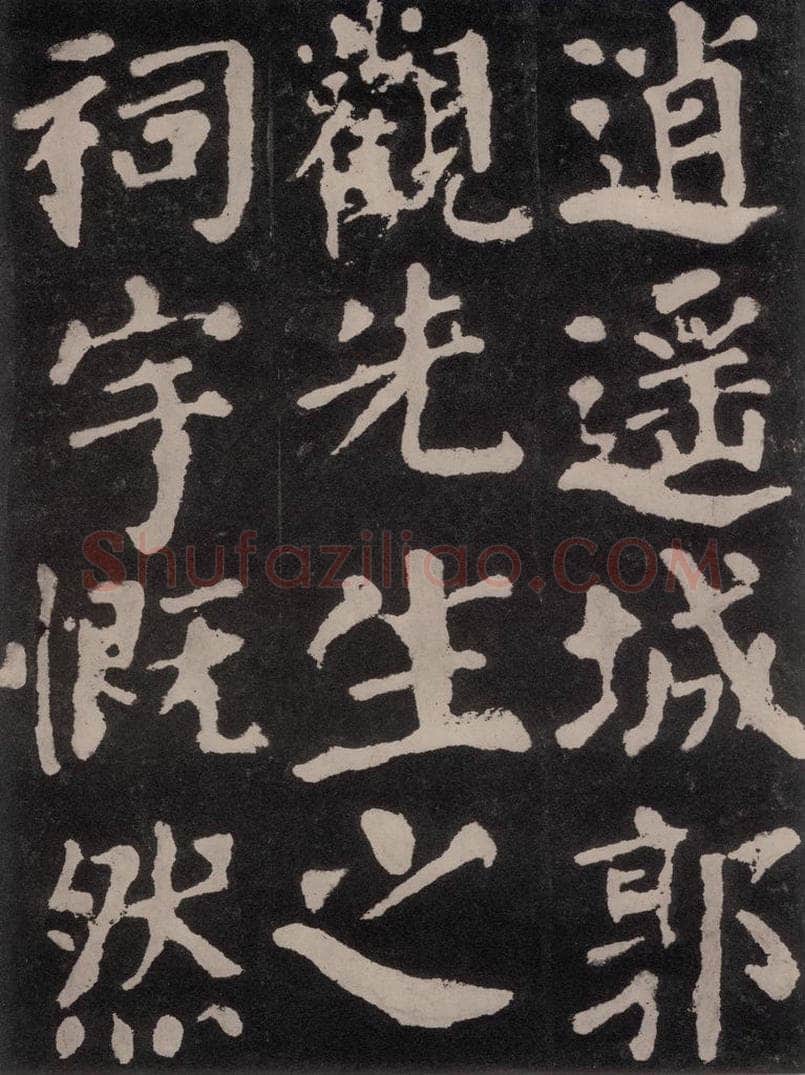 逍遥城郭
觀先生之
祠宇慨然
Shufaziliao.COM